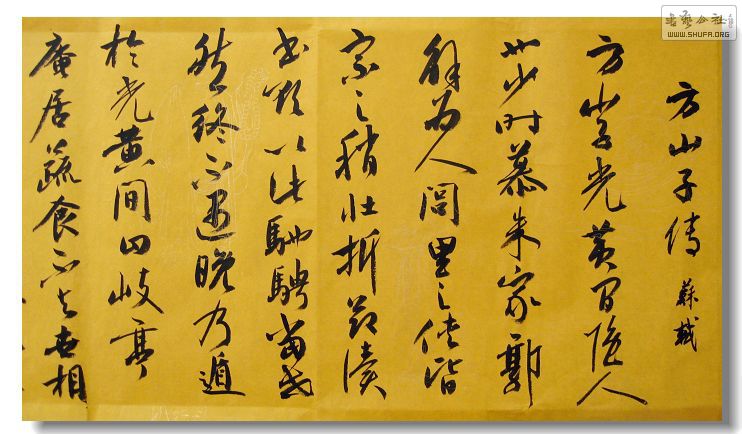 方山子傳 蘇軾
方山子光黄间隐人
也少时慕朱家郭
解为人閭里之侠皆
宗之稍壮折节读
书欲以此馳騁当世
然终不遇晚乃遁
於光黄间曰岐亭
庵居蔬食不与世相
書藝公社
WWW.SHUFA.ORG